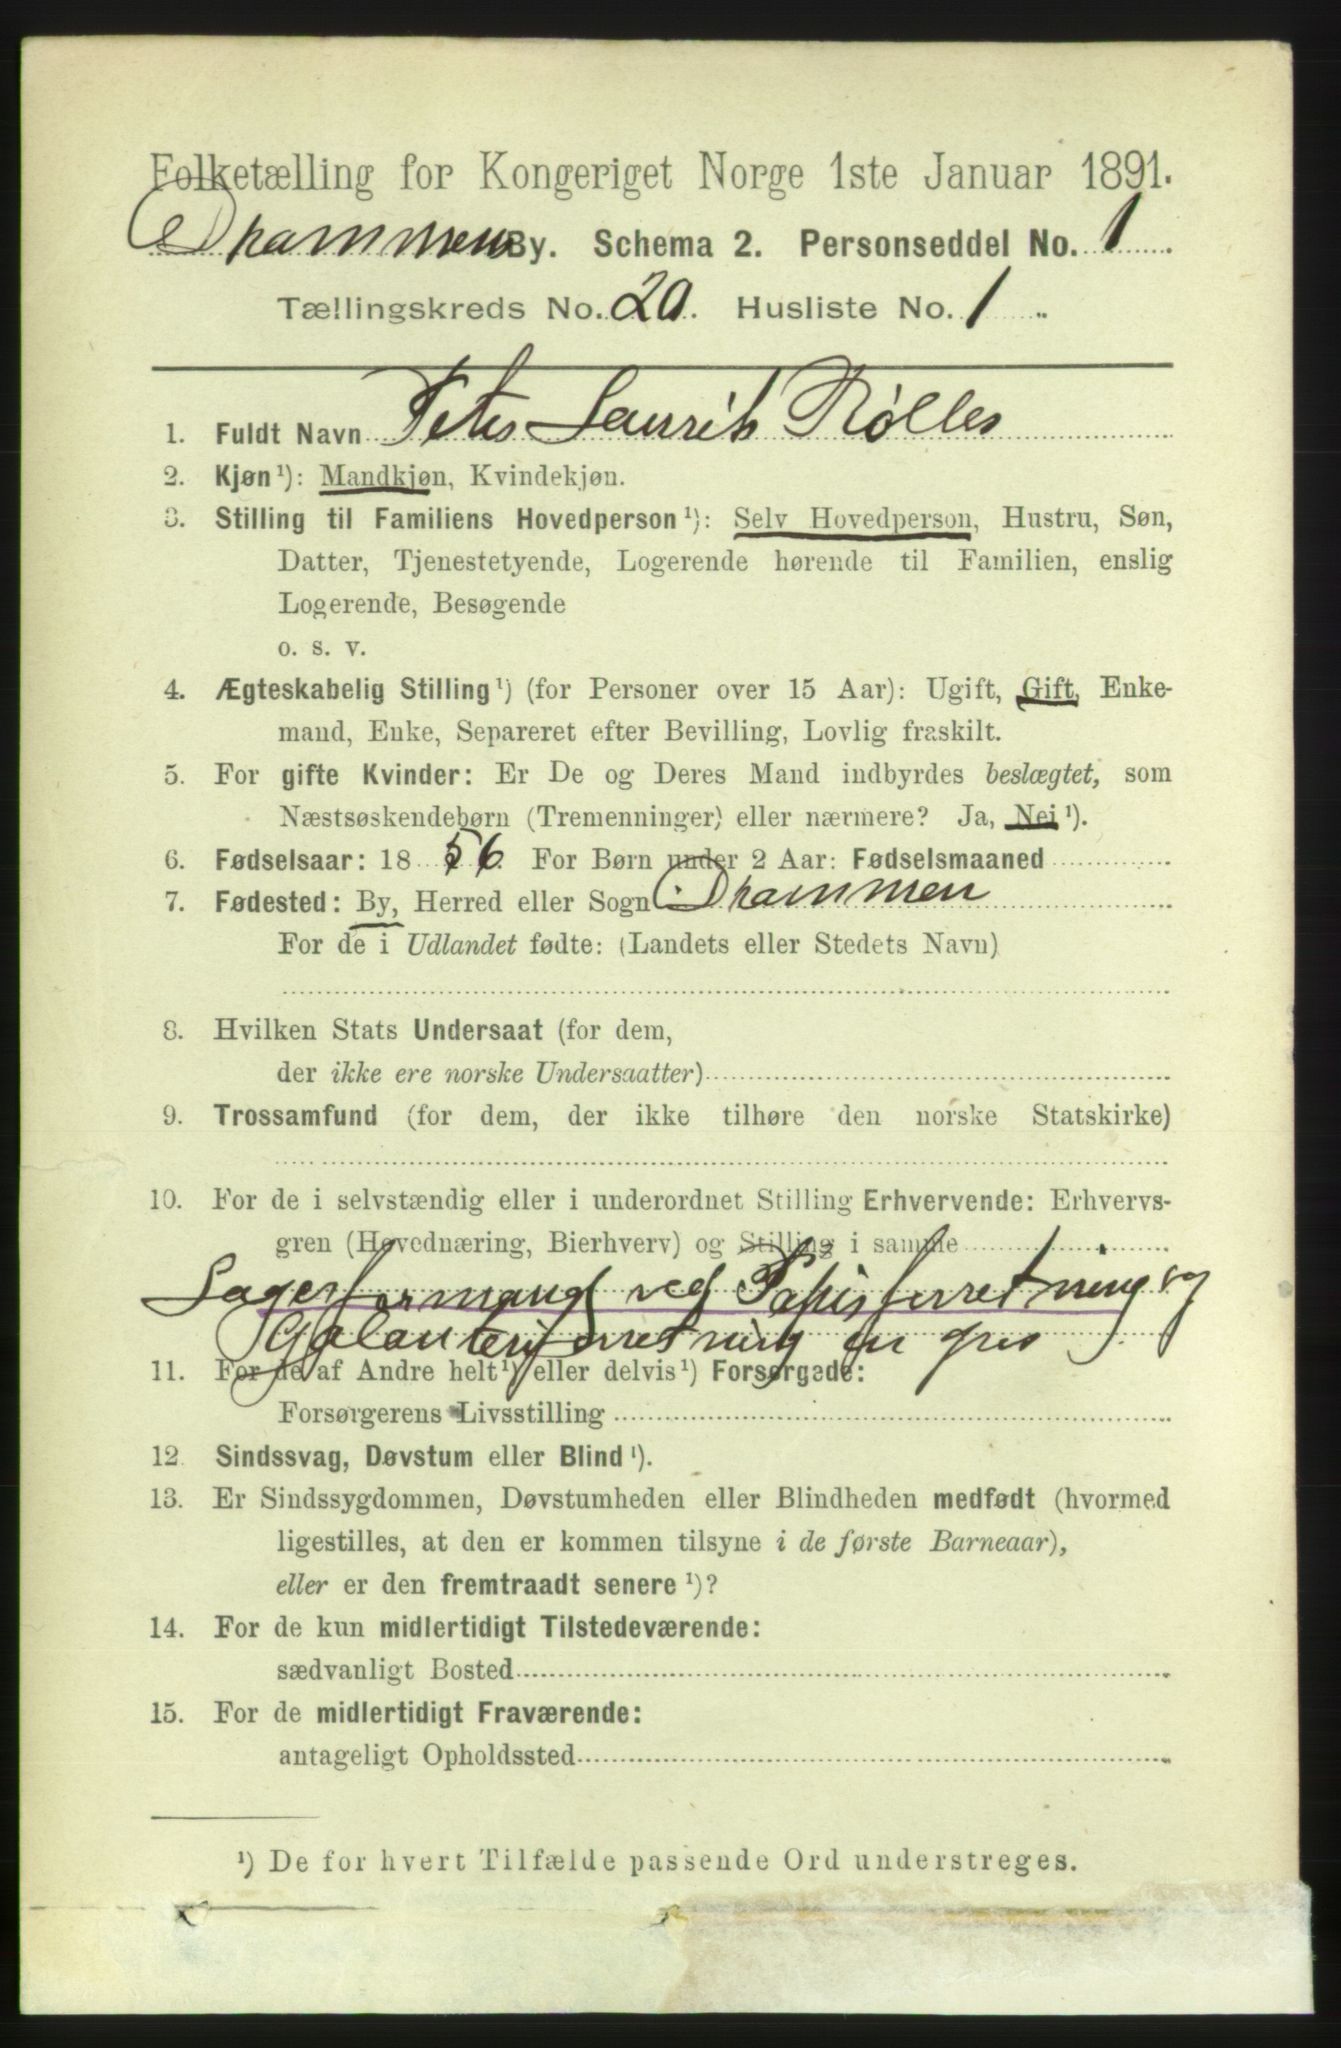 Folketælling for Kongeriget Norge 1ste Januar 1891.
Drammen By. Schema 2. Personseddel No. 1
Tællingskreds No. 20. Husliste No. 1
1. Fuldt Navn Peter Lauritz Møller
2. Kjøn¹): Mandkjøn, Kvindekjøn.
3. Stilling til Familiens Hovedperson¹): Selv Hovedperson, Hustru, Søn,
Datter, Tjenestetyende, Logerende hørende til Familien, enslig
Logerende, Besøgende
o. s. v.
4. Ægteskabelig Stilling¹) (for Personer over 15 Aar): Ugift, Gift, Enke-
mand, Enke, Separeret efter Bevilling, Lovlig fraskilt.
5. For gifte Kvinder: Er De og Deres Mand indbyrdes beslægtet, som
Næstsøskendebørn (Tremenninger) eller nærmere? Ja, Nei¹).
6. Fødselsaar: 1856 For Børn under 2 Aar: Fødselsmaaned
7. Fødested: By, Herred eller Sogn Drammen
For de i Udlandet fødte: (Landets eller Stedets Navn)
8. Hvilken Stats Undersaat (for dem,
der ikke ere norske Undersaatter)
9. Trossamfund (for dem, der ikke tilhøre den norske Statskirke)
10. For de i selvstændig eller i underordnet Stilling Erhvervende: Erhvervs-
gren (Hovednæring, Bierhverv) og Stilling i samme
Lagerformand ved Papirforretning og
Galanteriforretning en gros
11. For de af Andre helt¹) eller delvis¹) Forsørgede:
Forsørgerens Livsstilling
12. Sindssvag, Døvstum eller Blind¹).
13. Er Sindssygdommen, Døvstumheden eller Blindheden medfødt (hvormed
ligestilles, at den er kommen tilsyne i de første Barneaar),
eller er den fremtraadt senere¹)?
14. For de kun midlertidigt Tilstedeværende:
sædvanligt Bosted
15. For de midlertidigt Fraværende:
antageligt Opholdssted
¹) De for hvert Tilfælde passende Ord understreges.